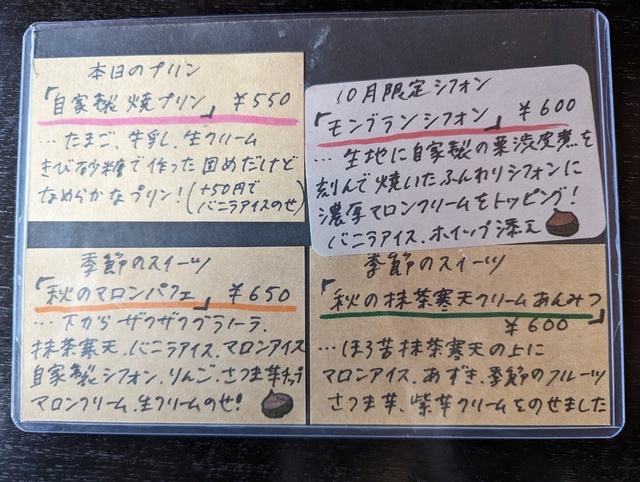 本日のプリン
「自家製焼プリン」 ¥550
…たまご、牛乳、生クリーム
きび砂糖で作った固めだけど
なめらかなプリン！(+50円で
バニラアイスのせ)
10月限定シフォン
「モンブランシフォン」 ¥600
…生地に自家製の栗渋皮煮を
刻んで焼いたふんわりシフォンに
濃厚マロンクリームをトッピング！
バニラアイス、ホイップ添え
季節のスイーツ
「秋のマロンパフェ」 ¥650
…下からザクザクグラノーラ、
抹茶寒天、バニラアイス、マロンアイス
自家製シフォン、りんご、さつま芋チップ
マロンクリーム、生クリームのせ！
季節のスイーツ
「秋の抹茶寒天クリームあんみつ」
¥600
…ほろ苦抹茶寒天の上に
マロンアイス、あずき、季節のフルーツ
さつま芋、紫芋クリームをのせました